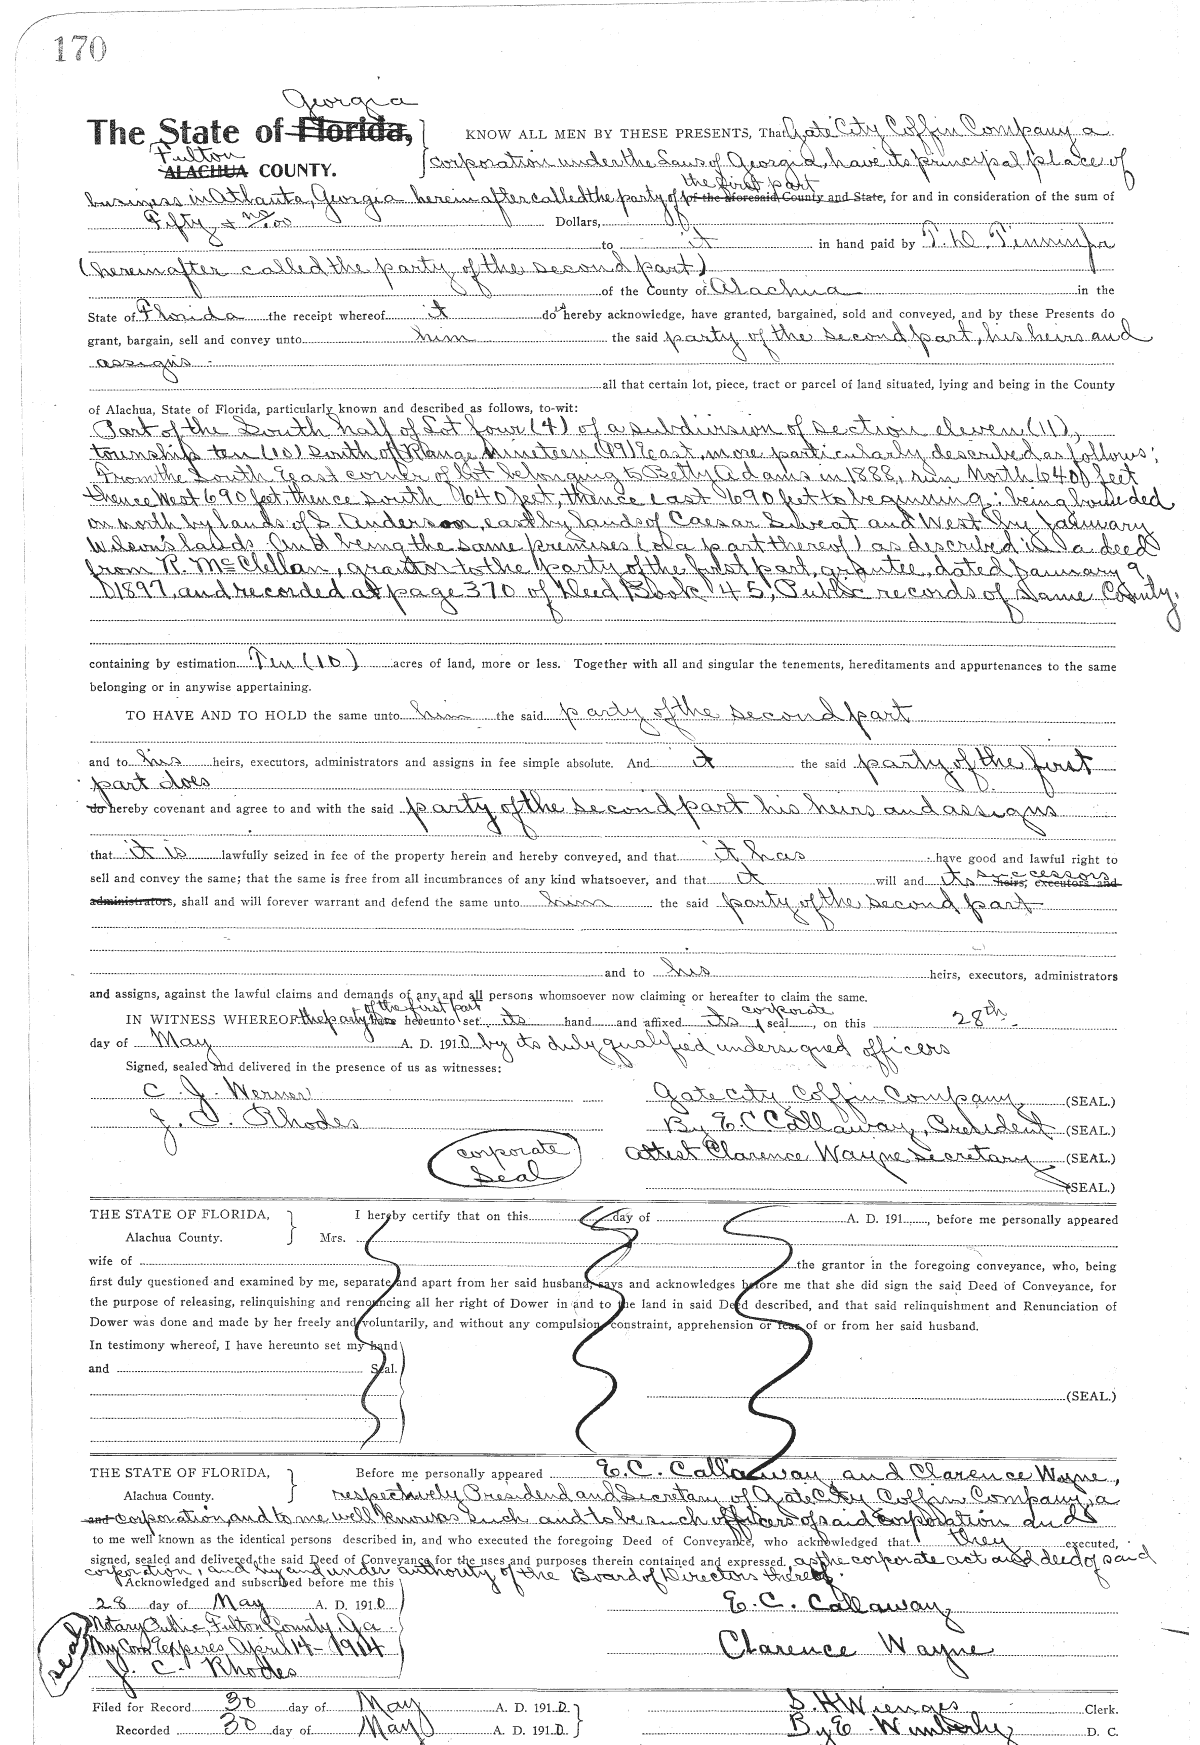 170
Georgia
The State of Florida,
Fulton
ALACHUA COUNTY.
KNOW ALL MEN BY THESE PRESENTS, That Gate City Coffin Company a
corporation under the Laws of Georgia, have its principal place of
the first part
business in Atlanta, Georgia hereinafter called the party of of the aforesaid County and State, for and in consideration of the sum of
Fifty & no/100 Dollars,
to it in hand paid by
(hereinafter called the party of the second part)
of the County of Alachua in the
State of Florida the receipt whereof it does hereby acknowledge, have granted, bargained, sold and conveyed, and by these Presents do
grant, bargain, sell and convey unto him the said party of the second part, his heirs and
assigns
all that certain lot, piece, tract or parcel of land situated, lying and being in the County
of Alachua, State of Florida, particularly known and described as follows, to-wit:
Part of the South half of Lot four (4) of a subdivision of section eleven (11),
township ten (10) South of Range nineteen (19) East, more particularly described as follows;
From the South East corner of lot belonging to Betty Adams in 1888, run North 640 feet
thence West 690 feet, thence south 640 feet, thence east 690 feet to beginning; being bounded
on north by lands of S. Anderson, east by lands of Caesar Sweat and West by January
Wilson's lands. And being the same premises (or a part thereof) as described in a deed
from R. McClellan, grantor to the party of the first part, grantee, dated January 9,
1897, and recorded at page 370 of Deed Book 45, Public records of Same County.
containing by estimation Ten (10) acres of land, more or less. Together with all and singular the tenements, hereditaments and appurtenances to the same
belonging or in anywise appertaining.
TO HAVE AND TO HOLD the same unto him the said party of the second part
and to his heirs, executors, administrators and assigns in fee simple absolute. And it the said party of the first
part does
do hereby covenant and agree to and with the said party of the second part his heirs and assigns
that it is lawfully seized in fee of the property herein and hereby conveyed, and that it has have good and lawful right to
sell and convey the same; that the same is free from all incumbrances of any kind whatsoever, and that it will and its successors heirs, executors and
administrators, shall and will forever warrant and defend the same unto him the said party of the second part
and to his heirs, executors, administrators
and assigns, against the lawful claims and demands of any and all persons whomsoever now claiming or hereafter to claim the same.
of the first part corporate
IN WITNESS WHEREOF, the party have hereunto set its hand and affixed its seal, on this 28th
day of May A. D. 1910 by its duly qualified undersigned officers
Signed, sealed and delivered in the presence of us as witnesses:
C. J. Werner Gate City Coffin Company (SEAL.)
J. C. Rhodes By E. C. Callaway, President (SEAL.)
corporate Seal
Attest Clarence Wayne Secretary (SEAL.)
(SEAL.)
THE STATE OF FLORIDA,
Alachua County.
I hereby certify that on this day of A. D. 191 , before me personally appeared
Mrs.
wife of the grantor in the foregoing conveyance, who, being
first duly questioned and examined by me, separate and apart from her said husband, says and acknowledges before me that she did sign the said Deed of Conveyance, for
the purpose of releasing, relinquishing and renouncing all her right of Dower in and to the land in said Deed described, and that said relinquishment and Renunciation of
Dower was done and made by her freely and voluntarily, and without any compulsion, constraint, apprehension or fear of or from her said husband.
In testimony whereof, I have hereunto set my hand
and Seal.
(SEAL.)
THE STATE OF FLORIDA,
Alachua County.
Before me personally appeared E. C. Callaway and Clarence Wayne,
respectively President and Secretary of Gate City Coffin Company, a
and corporation, and to me well known as such and to be such officers of said corporation and
to me well known as the identical persons described in, and who executed the foregoing Deed of Conveyance, who acknowledged that they executed,
signed, sealed and delivered the said Deed of Conveyance for the uses and purposes therein contained and expressed, as the corporate act and deed of said
corporation, and by and under authority of the Board of Directors thereof.
Acknowledged and subscribed before me this
28 day of May A. D. 1910 E. C. Callaway
Notary Public, Fulton County, Ga.
My Com Expires April 14-1914 Clarence Wayne
seal
J. C. Rhodes
Filed for Record 30 day of May A. D. 1910. S. H. Wienges Clerk.
Recorded 30 day of May A. D. 1910. By E. Wimberly D. C.